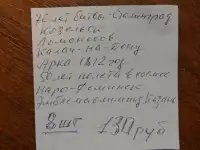 70 лет битвы Сталинград
Козельск
Ломоносов
Калач-на-Дону
Арка 1812 год
50 лет полета в космос
Наро-Фоминск
Эмблема
8 шт 130 руб